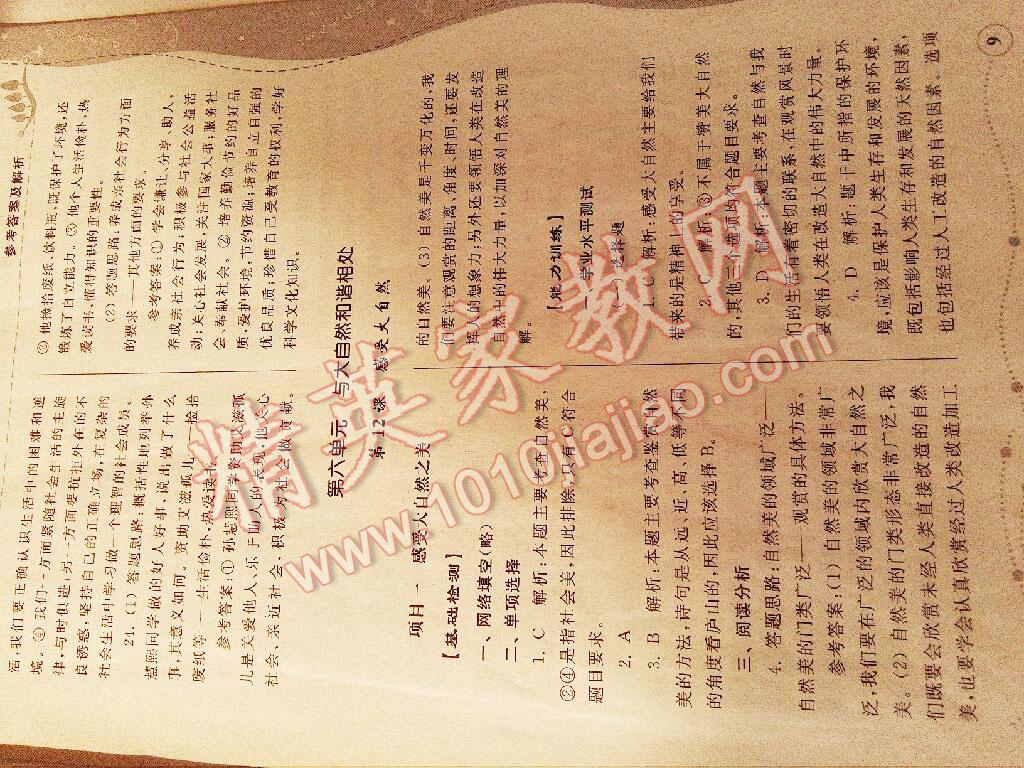 参考答案及解析
活，我们要正确认识生活中的困难和逆
境。④我们一方面紧随社会生活的主旋
律，与时俱进；另一方面要抗拒外在的不
良诱惑，坚持自己的正确立场，在复杂的
社会生活中学习做一个理智的社会成员。
24. (1) 答题思路：概括性地列举孙
慧熙同学做的好人好事，说出做了什么
事，其意义如何。资助艾滋孤儿——捡拾
废纸等——生活俭朴，热爱读书。
参考答案：① 孙慧熙同学资助艾滋孤
儿是关爱他人、乐于助人的表现，他关心
社会、亲近社会、积极为社会做贡献。
② 他捡拾废纸、饮料瓶，既保护了环境，还
锻炼了自立能力。③ 他个人生活俭朴，热
爱读书，懂得知识的重要性。
(2) 答题思路：养成亲社会行为方面
的要求——其他方面的要求。
参考答案：① 学会谦让、分享、助人，
养成亲社会行为，积极参与社会公益活
动，关心社会发展，关注国家大事，服务社
会，奉献社会。② 培养勤俭节约的好品
质，爱护环境，节约资源；培养自立自强的
优良品质；珍惜自己受教育的权利，学好
科学文化知识。
第六单元 与大自然和谐相处
第 12 课 感受大自然
项目一 感受大自然之美
【基础检测】
一、网络填空(略)
二、单项选择
1. C 解析：本题主要考查自然美，
②④是指社会美，因此排除，只有 C 符合
题目要求。
2. A
3. B 解析：本题主要考查鉴赏自然
美的方法，诗句是从远、近、高、低等不同
的角度看庐山的，因此应该选择 B。
三、阅读分析
4. 答题思路：自然美的领域广泛——
自然美的门类广泛——观赏的具体方法。
参考答案：(1) 自然美的领域非常广
泛，我们要在广泛的领域内欣赏大自然之
美。(2) 自然美的门类形态非常广泛，我
们既要会欣赏未经人类直接改造的自然
美，也要学会认真欣赏经过人类改造加工
的自然美。(3) 自然美是千变万化的，我
们要注意观赏的距离、角度、时间，还要发
挥人的想象力；另外还要领悟人类在改造
自然中的伟大力量，以加深对自然美的理
解。
【能力训练】
一、学业水平测试
一、选择题
1. C 解析：感受大自然主要给我们
带来的是精神上的享受。
2. C 解析：③不属于赞美大自然
的，其他三个选项均符合题目要求。
3. D 解析：本题主要考查自然与我
们的生活有着密切的联系，在观赏风景时
要领悟人类在改造大自然中的伟大力量。
4. D 解析：题干中所指的保护环
境，应该是保护人类生存和发展的环境，
既包括影响人类生存和发展的天然因素，
也包括经过人工改造的自然因素。选项
9
精英家教网
www.1010jiajiao.com